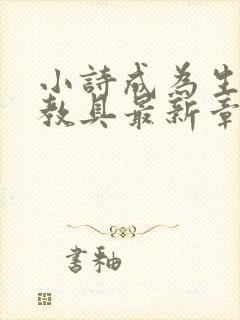 小詩成為生
教具最新章
書釉